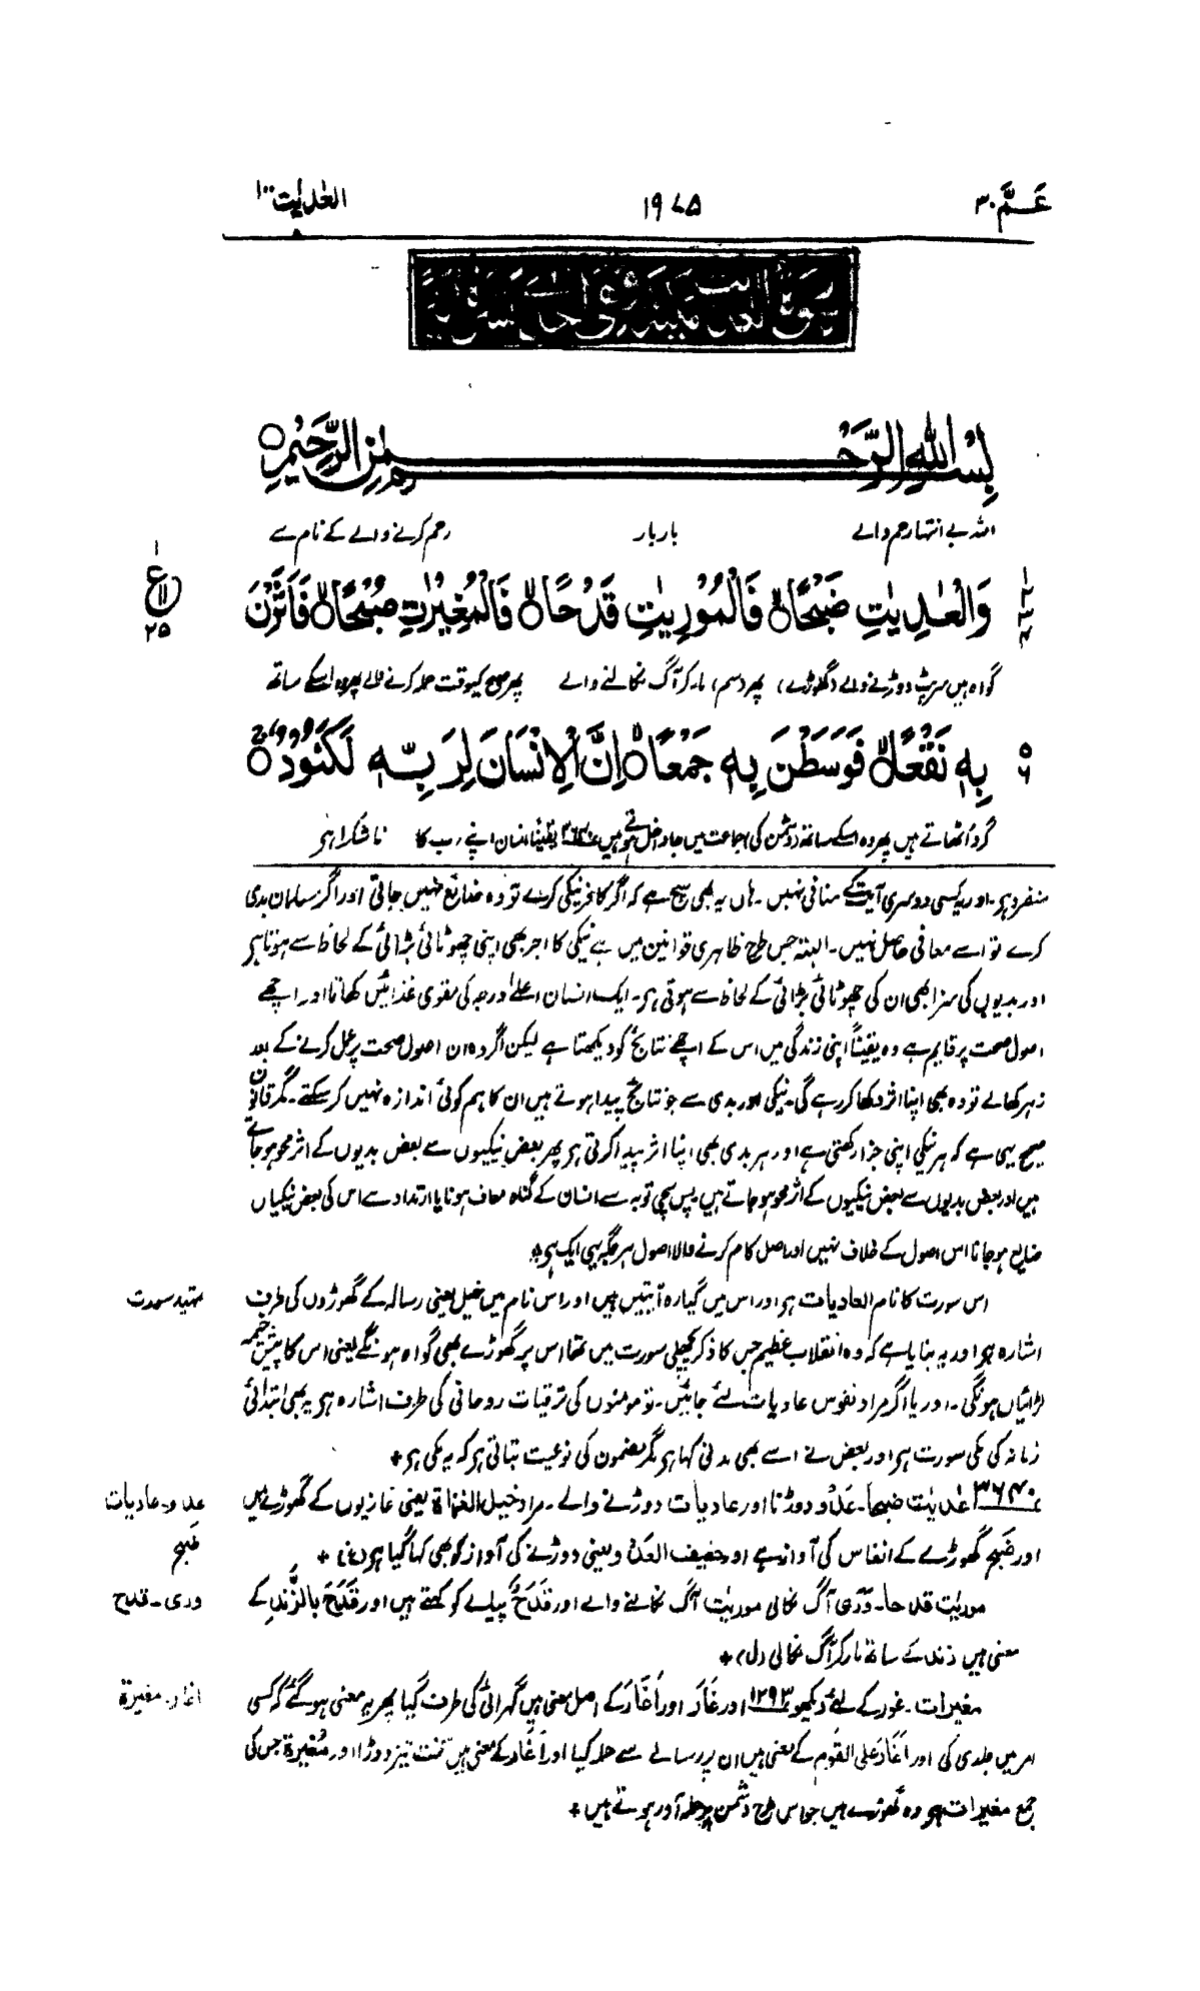 عَمَّ ۳۰ ۱۹۷۵ العٰدیٰت ۱۰۰
بِسْمِ اللّٰهِ الرَّحْمٰنِ الرَّحِيْمِ ○
اللہ بے انتہا رحم والے بار بار رحم کرنے والے کے نام سے
وَالْعٰدِيٰتِ ضَبْحًا ۙ فَالْمُوْرِيٰتِ قَدْحًا ۙ فَالْمُغِيْرٰتِ صُبْحًا ۙ فَاَثَرْنَ
گواہ ہیں سرپٹ دوڑنے والے (گھوڑے) پھر (سم) مار کر آگ نکالنے والے پھر صبح کیوقت حملہ کرنے والے پھر وہ اسکے ساتھ
بِهٖ نَقْعًا ۙ فَوَسَطْنَ بِهٖ جَمْعًا ۙ اِنَّ الْاِنْسَانَ لِرَبِّهٖ لَكَنُوْدٌ ۚ
گرد اُٹھاتے ہیں پھر وہ اسکے ساتھ (دشمن کی) جماعت میں جا داخل ہوتے ہیں ۳۶۴۰ یقیناً انسان اپنے رب کا ناشکرا ہر
منفرد ہر۔ اور یہ کسی دوسری آیت کے منافی نہیں۔ ہاں یہ بھی سچ ہے کہ اگر کافر نیکی کرے تو وہ ضایع نہیں جاتی اور اگر مسلمان بدی
کرے تو اسے معافی حاصل نہیں۔ البتہ جس طرح ظاہری قوانین میں ہے نیکی کا اجر بھی اپنی چھوٹائی بڑائی کے لحاظ سے ہوتا ہر
اور بدیوں کی سزا بھی ان کی چھوٹائی بڑائی کے لحاظ سے ہوتی ہر۔ ایک انسان اعلےٰ درجہ کی مقوی غذائیں کھاتا اور اچھے
اصول صحت پر قایم ہے وہ یقیناً اپنی زندگی میں اس کے اچھے نتائج کو دیکھتا ہے لیکن اگر وہ ان اصول صحت پر عمل کرنے کے بعد
زہر کھالے تو وہ بھی اپنا اثر دکھا کر رہے گی۔ نیکی اور بدی سے جو نتائج پیدا ہوتے ہیں ان کا ہم کوئی اندازہ نہیں کر سکتے۔ مگر قانون
صحیح یہی ہے کہ ہر نیکی اپنی جزا رکھتی ہے اور ہر بدی بھی اپنا اثر پیدا کرتی ہر پھر بعض نیکیوں سے بعض بدیوں کے اثر محو ہو جاتے
ہیں اور بعض بدیوں سے بعض نیکیوں کے اثر محو ہو جاتے ہیں۔ پس سچی توبہ سے انسان کے گناہ معاف ہونا یا ارتداد سے اس کی بعض نیکیاں
ضایع ہو جانا اس اصول کے خلاف نہیں اور اصل کام کرنے والا اصول ہر جگہ یہی ایک ہر +
تمہید سورت
اس سورت کا نام العادیات ہر اور اس میں گیارہ آیتیں ہیں اور اس نام میں خیل یعنی رسالہ کے گھوڑوں کی طرف
اشارہ ہر اور یہ بتایا ہے کہ وہ انقلاب عظیم جس کا ذکر پچھلی سورت میں تھا اس پر گھوڑے بھی گواہ ہونگے یعنی اس کا پیش خیمہ
لڑائیاں ہونگی۔ اور یا اگر مراد نفوس عادیات لئے جائیں۔ تو مومنوں کی ترقیات روحانی کی طرف اشارہ ہر یہ بھی ابتدائی
زمانہ کی مکی سورت ہر اور بعض نے اسے بھی مدنی کہا ہر مگر مضمون کی نوعیت بتاتی ہر کہ یہ مکی ہر +
عدو۔ عادیات
۳۶۴۰ عٰدیٰت ضبحا۔ عَدْو دوڑنا اور عادیات دوڑنے والے۔ مراد خیل الغزاۃ یعنی غازیوں کے گھوڑے ہیں
ضَبْح
اور ضَبْح گھوڑے کے انفاس کی آواز ہے اور خفیف العدو یعنی دوڑنے کی آواز کو بھی کہا گیا ہر (غ) +
وری۔ قدح
موریٰت قدحا۔ وَرَی آگ نکالی موریٰت آگ نکالنے والے اور قَدَحٌ پیالے کو کہتے ہیں اور قَدَحَ بالزَّنْد کے
معنی ہیں زند کے ساتھ مار کر آگ نکالی (ل) +
اغار۔ مغیرۃ
مغیرات۔ غور کے لئے دیکھو ۱۲۹۳ اور غَارَ اور اَغَارَ کے اصل معنی ہیں گہرائی کی طرف گیا پھر یہ معنی ہو گئے کہ کسی
امر میں جلدی کی اور اَغَارَ علی القوم کے معنی ہیں ان پر رسالے سے حملہ کیا اور اَغَارَ کے معنی ہیں سخت تیز دوڑا اور مُغیرۃ جس کی
جمع مغیرات ہر وہ گھوڑے ہیں جو اس طرح دشمن پر حملہ آور ہوتے ہیں +